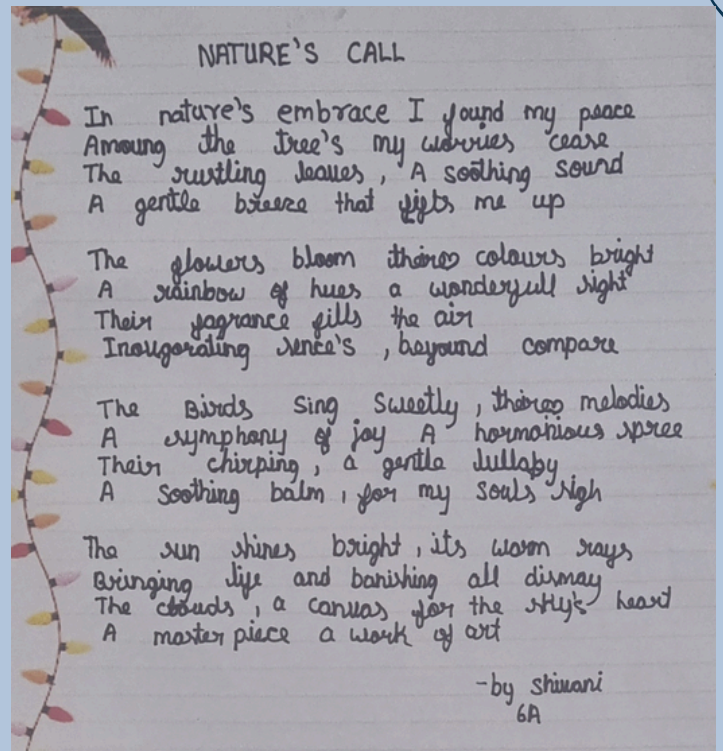 NATURE'S CALL
In nature's embrace I found my peace
Amoung the tree's my worries cease
The rustling leaves, A soothing sound
A gentle breeze that lifts me up
The flowers bloom colours bright
A rainbow of hues a wonderfull sight
Their fagrance fills the air
Inougorating sence's, beyound compare
The Birds sing sweetly, melodies
A symphony of joy A harmonious spree
Their chirping, a gentle lullaby
A soothing balm, for my souls sigh
The sun shines bright, its warm rays
Bringing life and banishing all dismay
The clouds, a canvas for the sky's heart
A master piece a work of art
-by Shivani
6A